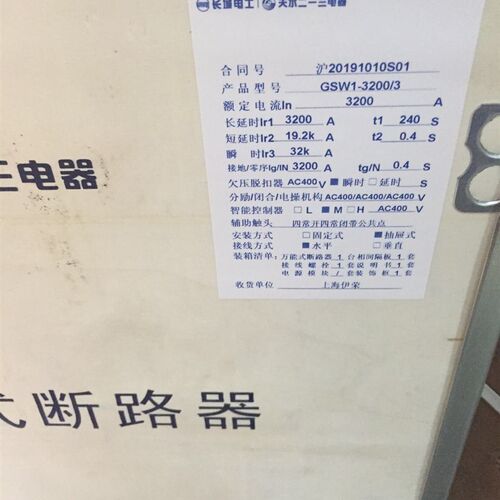 长城电工 天水二一三电器
合同号 沪20191010S01
产品型号 GSW1-3200/3
额定电流In 3200 A
长延时Ir1 3200 A t1 240 S
短延时Ir2 19.2k A t2 0.4 S
瞬 时Ir3 32k A
接地/零序Ig/IN 3200 A tg/N 0.4 S
欠压脱扣器 AC400 V ■瞬时 □延时 S
分励/闭合/电操机构 AC400/AC400/AC400 V
智能控制器 □L ■M □H AC400 V
辅助触头 四常开四常闭带公共点
安装方式 □固定式 ■抽屉式
接线方式 ■水平 □垂直
装箱清单：万能式断路器 1 台 相间隔板 1 套
接线螺栓 1 套 说明书 1 套
电源模块 / 套 装饰框 1 套
收货单位 上海伊荣
三电器
式断路器